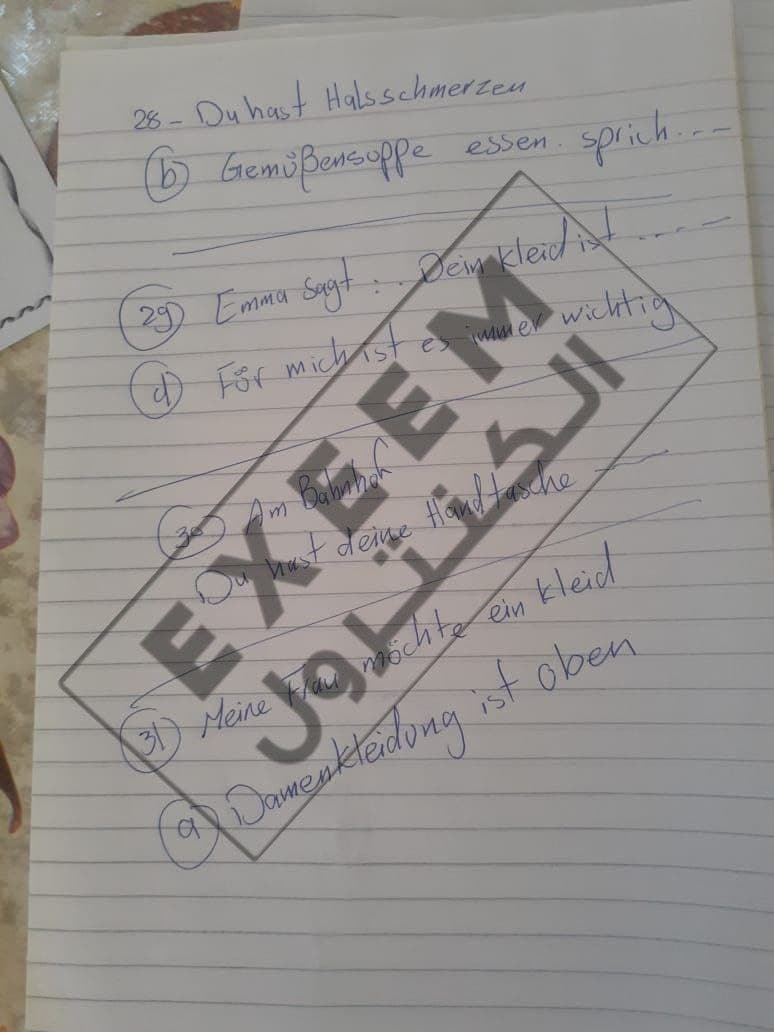 28 - Du hast Halsschmerzen
b Gemüßensoppe essen. sprich...--
29 Emma sagt :.. Dein kleid ist ....--
d För mich ist es immer wichtig
30 Am Bahnhof
Du hast deine Handtasche ——
31 Meine Frau möchte ein kleid
a Damenkleidung ist oben
EXEEM
الكنترول